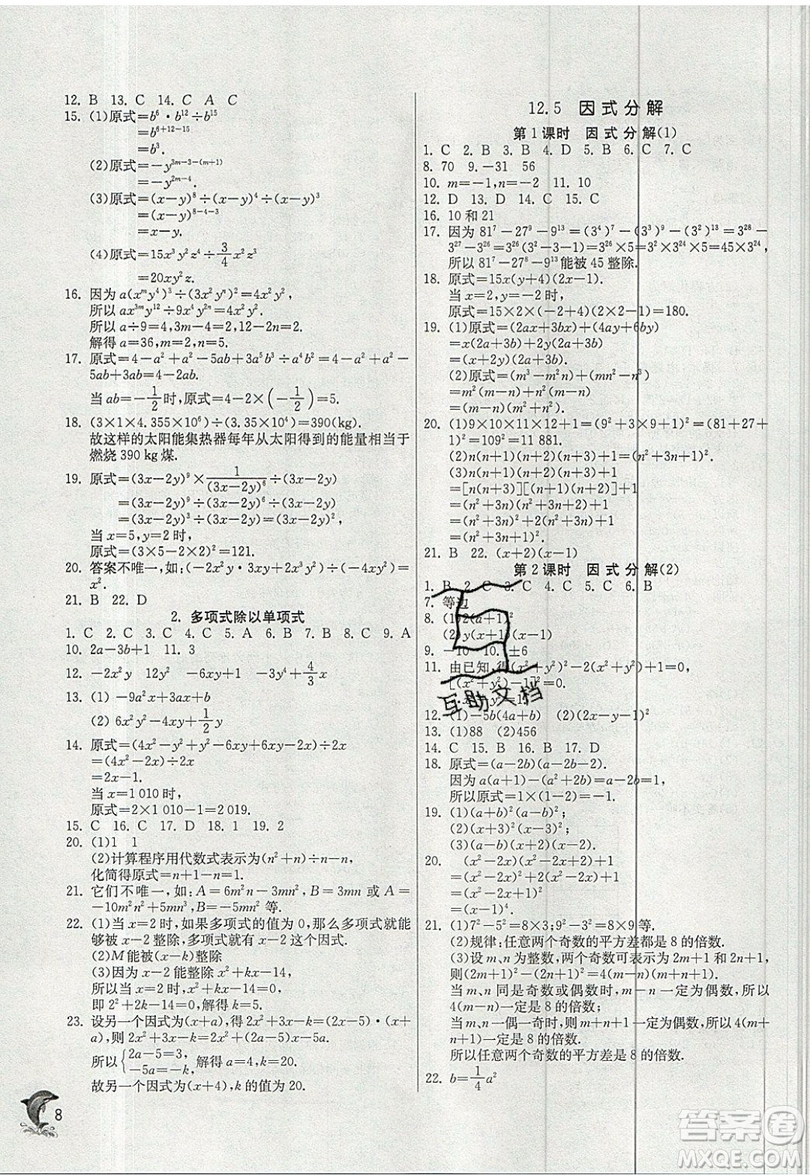 12. B  13. C  14. C  A  C
15. (1)原式=b⁶·b¹²÷b¹⁵
=b⁶⁺¹²⁻¹⁵
=b³.
(2)原式=-y³ᵐ⁻³⁻⁽ᵐ⁺¹⁾
=-y²ᵐ⁻⁴.
(3)原式=(x-y)⁸÷(x-y)⁴÷(x-y)³
=(x-y)⁸⁻⁴⁻³
=x-y.
(4)原式=15x³y³z⁴÷3/4x²z³
=20xy³z.
16. 因为a(xᵐy⁴)³÷(3x²yⁿ)²=4x²y²,
所以ax³ᵐy¹²÷9x⁴y²ⁿ=4x²y²,
所以a÷9=4,3m-4=2,12-2n=2.
解得a=36,m=2,n=5.
17. 原式=4-a²+a²-5ab+3a⁵b³÷a⁴b²
=4-5ab+3ab=4-2ab.
当ab=-1/2时,原式=4-2×(-1/2)=5.
18. (3×1×4.355×10⁶)÷(3.35×10⁴)=390(kg).
故这样的太阳能集热器每年从太阳得到的能量相当于
燃烧390 kg煤.
19. 原式=(3x-2y)⁹×1/(3x-2y)⁶÷(3x-2y)
=(3x-2y)⁹÷(3x-2y)⁶÷(3x-2y)
=(3x-2y)².
当x=5,y=2时,
原式=(3×5-2×2)²=121.
20. 答案不唯一,如(2x³y)·(-2xy)÷(-4xy²)=
x³.
21. B  22. D
2. 多项式除以单项式
1. C  2. C  3. A  4. B  5. D  6. A  7. B  8. C  9. A
10. 2a-3b+1  11. 3
12. -2x²y  -6xy+1  -3y⁴+4/3x
13. (1)-9a²x+3ax³
(2) 6x²y²-4xy+1/2y
14. 原式=(4x²-y²+y²-6xy+6xy-2x)÷2x
=(4x²-2x)÷2x
=2x-1.
当x=1 010时,
原式=2×1 010-1=2 019.
15. C  16. C  17. D  18. 1  19. 2
20. (1)1  1
(2)计算程序用代数式表示为(n²+n)÷n-n,
化简得原式=1.
21. 它们不唯一,如:A=6m²n-3mn²,B=6m³-
10m²n²-5mn²等.
22. (1)当x=2时,如果多项式的值为0,那么多项式就能
够被x-2整除,多项式有一个因式.
(2)M能被(x-k)整除
(3)因为x-2能整除x²+kx-14,
所以当x-2=0时,x²+kx-14=0,
即2²+2k-14=0,所以k=5.
23. 设另一个因式为(x+a),得2x²+3x-k=(2x-5)·(x+
a),则2x²+3x-k=2x²+(2a-5)x-5a.
所以{2a-5=3, -5a=-k, 解得a=4,k=20.
故另一个因式为(x+4),k的值为20.
8
12.5 因式分解
第1课时 因式分解(1)
1. C  2. B  3. C  4. D  5. A  6. C  7. D
8. 70  9. -31  56
10. m=-1,n=-2  11. 10
12. D  13. D  14. C  15. D
16. 10和21
17. 因为81⁷-27⁹-9¹³=(3⁴)⁷-(3³)⁹-(3²)¹³=3²⁸-
3²⁷-3²⁶=3²⁶(3²-3-1)=3²⁶×5=3²⁴×3²×5=3²⁴×45,
所以81⁷-27⁹-9¹³能被45整除.
18. 原式=15x(y+4)(2x-1).
当x=2,y=-2时,
原式=15×2×(-2+4)(2×2-1)=180.
19. (1)原式=(2ax+3bx)+(4ay+6by)
=x(2a+3b)+2y(2a+3b)
=(x+2y)(2a+3b)
(2)原式=(m³-m²n)+(mn²-n³)
=m²(m-n)+n²(m-n)
=(m-n)(m²+n²).
20. (1)9×10×11×12+1=(9²+3×9+1)²=(81+27+
1)²=109²=11 881.
(2)n(n+1)(n+2)(n+3)+1=(n²+3n+1)².
(3)n(n+1)(n+2)(n+3)+1
=[n(n+3)][(n+1)(n+2)]+1
=(n²+3n)(n²+3n+2)+1
=(n²+3n)²+2(n²+3n)+1
=(n²+3n+1)².
21. B  22. (x+2)(x-1)
第2课时 因式分解(2)
1. B  2. C  3. C  4. C  5. C  6. B
7. 等边
8. (1)2(a+1)²
(2)y(x+1)(x-1)
9. -10  10. ±6
11. 由已知,得(x²+y²)²-2(x²+y²)+1=0,
[(x²+y²)-1]²=0,
12. (1)-5b(4a+b)  (2)(2x-3)²
13. (1)88  (2)456
14. C  15. B  16. B  17. D
18. 原式=(a-2b)(a-2b-1).
因为a(a+1)-(a²+2b)=1,所以a-2b=1,
所以原式=1×(1-1)=0.
19. (1)(a+b)²(a-b)²;
(2)(x+3)²(x-3)²;
(3)(a-b)(x+2)(x-2).
20. (x²-2x)(x²-2x+2)+1
=(x²-2x)²+2(x²-2x)+1
=(x²-2x+1)²
=(x-1)⁴.
21. (1)7²-5²=8×3;9²-3²=8×9等.
(2)规律:任意两个奇数的平方差都是8的倍数.
(3)设m、n为整数,两个奇数可表示为2m+1和2n+1,
则(2m+1)²-(2n+1)²=4(m-n)(m+n+1).
当m、n同是奇数或偶数时,m-n一定为偶数,
所以4(m-n)一定是8的倍数;
当m、n一偶一奇时,则m+n+1一定为偶数,
所以4(m+n+1)一定是8的倍数.
所以任意两个奇数的平方差是8的倍数.
22. b=1/4a²
互助文档
答案圈
MXQE.COM